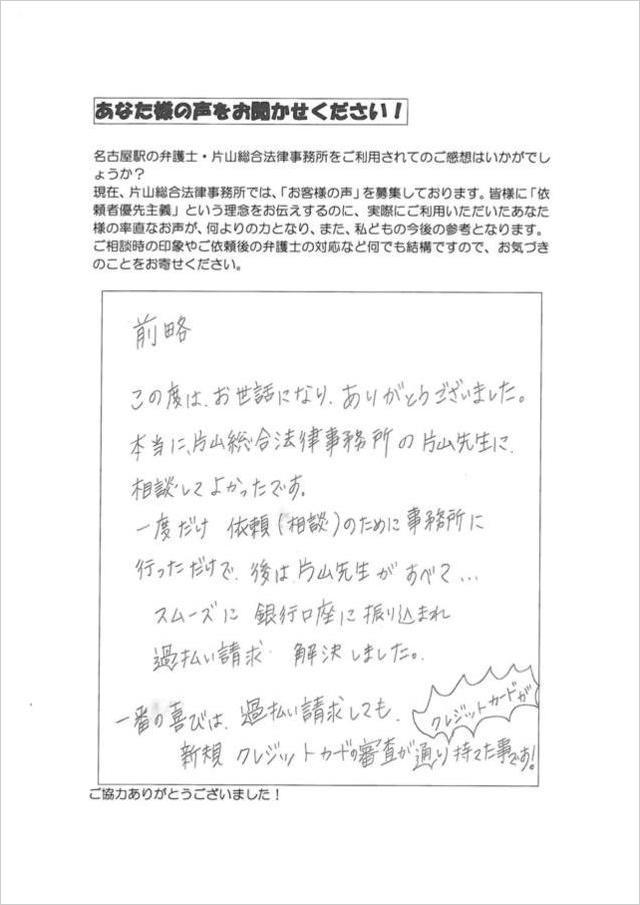 あなた様の声をお聞かせください!
名古屋駅の弁護士・片山総合法律事務所をご利用されてのご感想はいかがでし
ょうか?
現在、片山総合法律事務所では、「お客様の声」を募集しております。皆様に「依
頼者優先主義」という理念をお伝えするのに、実際にご利用いただいたあなた
様の率直なお声が、何よりの力となり、また、私どもの今後の参考となります。
ご相談時の印象やご依頼後の弁護士の対応など何でも結構ですので、お気づき
のことをお寄せください。
前略
この度は、お世話になり、ありがとうございました。
本当に、片山総合法律事務所の片山先生に、
相談してよかったです。
一度だけ 依頼(相談)のために事務所に
行っただけで、後は、片山先生がすべて...
スムーズに 銀行口座に振り込まれ
過払い請求 解決しました。
一番の喜びは、過払い請求しても、
クレジットカードが
新規 クレジットカードの審査が通り持てた事です!
ご協力ありがとうございました!